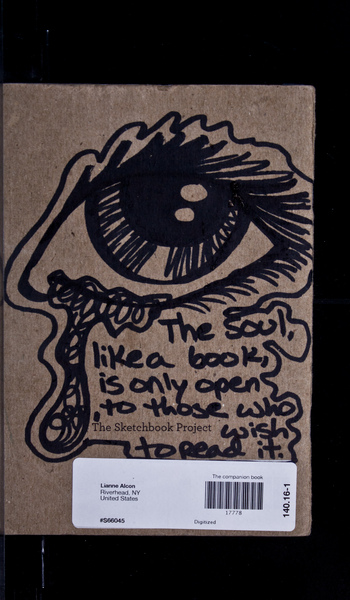 The soul,
like a book,
is only open
to those who
The Sketchbook Project
wish
to read it.
The companion book
Lianne Alcon
Riverhead, NY
United States
17778
#S66045
Digitized
140.16-1